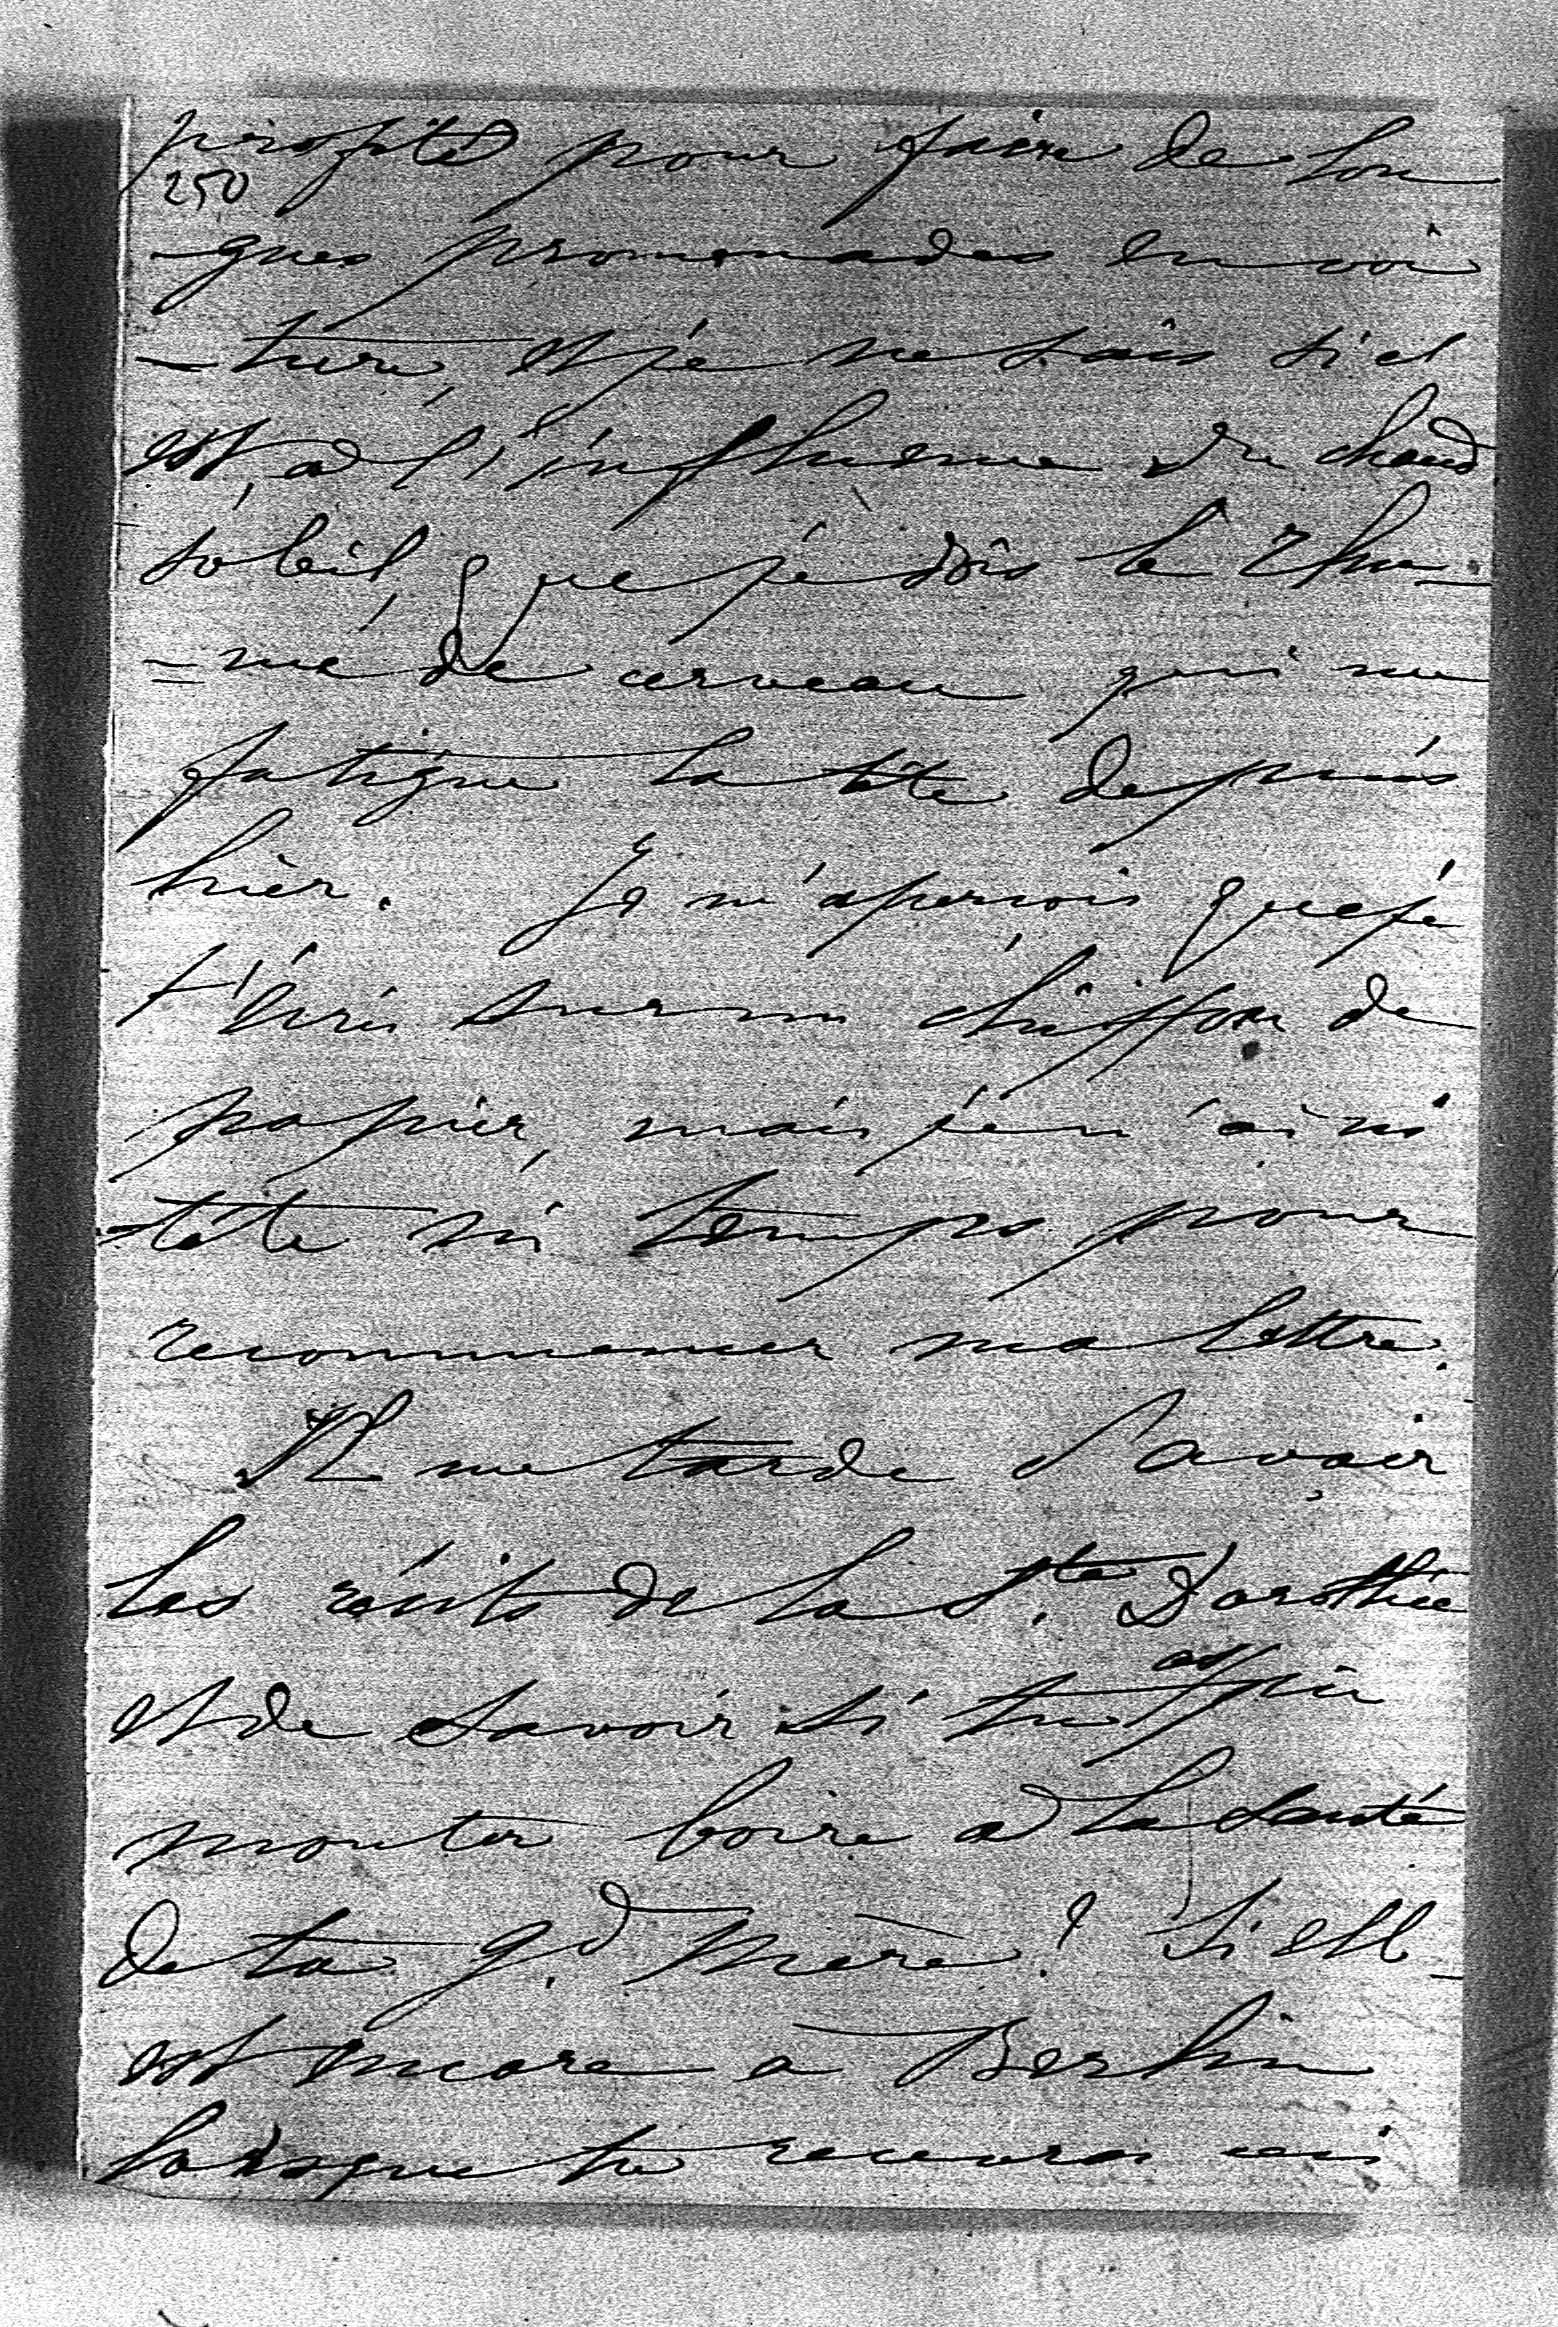 profité pour faire de lon
250
-gues promenades en voi
-ture, et je ne sais si c'
est à l'influence du chaud
soleil, que je dois le rhu-
=me de cerveau qui me
fatigue la tête depuis
hier. Je m'aperçois que je
t'écris sur un chiffon de
papier, mais je n'ai ni
tête ni temps pour
recommencer ma lettre.
Il me tarde d'avoir
les récits de la Ste Dorothée
et de savoir si tu as pu
monter boire à la santé
de ta gd Mère! Si elle
est encore à Berlin
lorsque tu recevras ceci